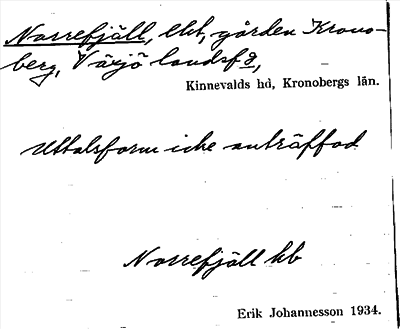 Norrefjäll, lht, gården Krono-
berg, Växjö landsfs,
Kinnevalds hd, Kronobergs län.
Uttalsform icke anträffad
Norrefjäll hb
Erik Johannesson 1934.